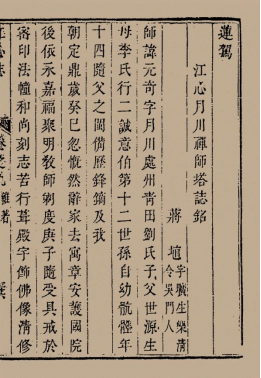 蓮駕
江心月川禪師塔誌銘
蔣埴字曠生樂清
令吳門人
師諱元奇字月川處州青田劉氏子父世源生
母李氏行二誠意伯第十二世孫自幼骯髒年
十四隨父之閩備歷鋒鏑及我
朝定鼎歲癸巳忽慨然辭家去寓章安護國院
後依永嘉福聚明教師剃度庚子隨受具戒於
密印法幢和尚刻志苦行葺殿宇飾佛像清修
江心志
雜著